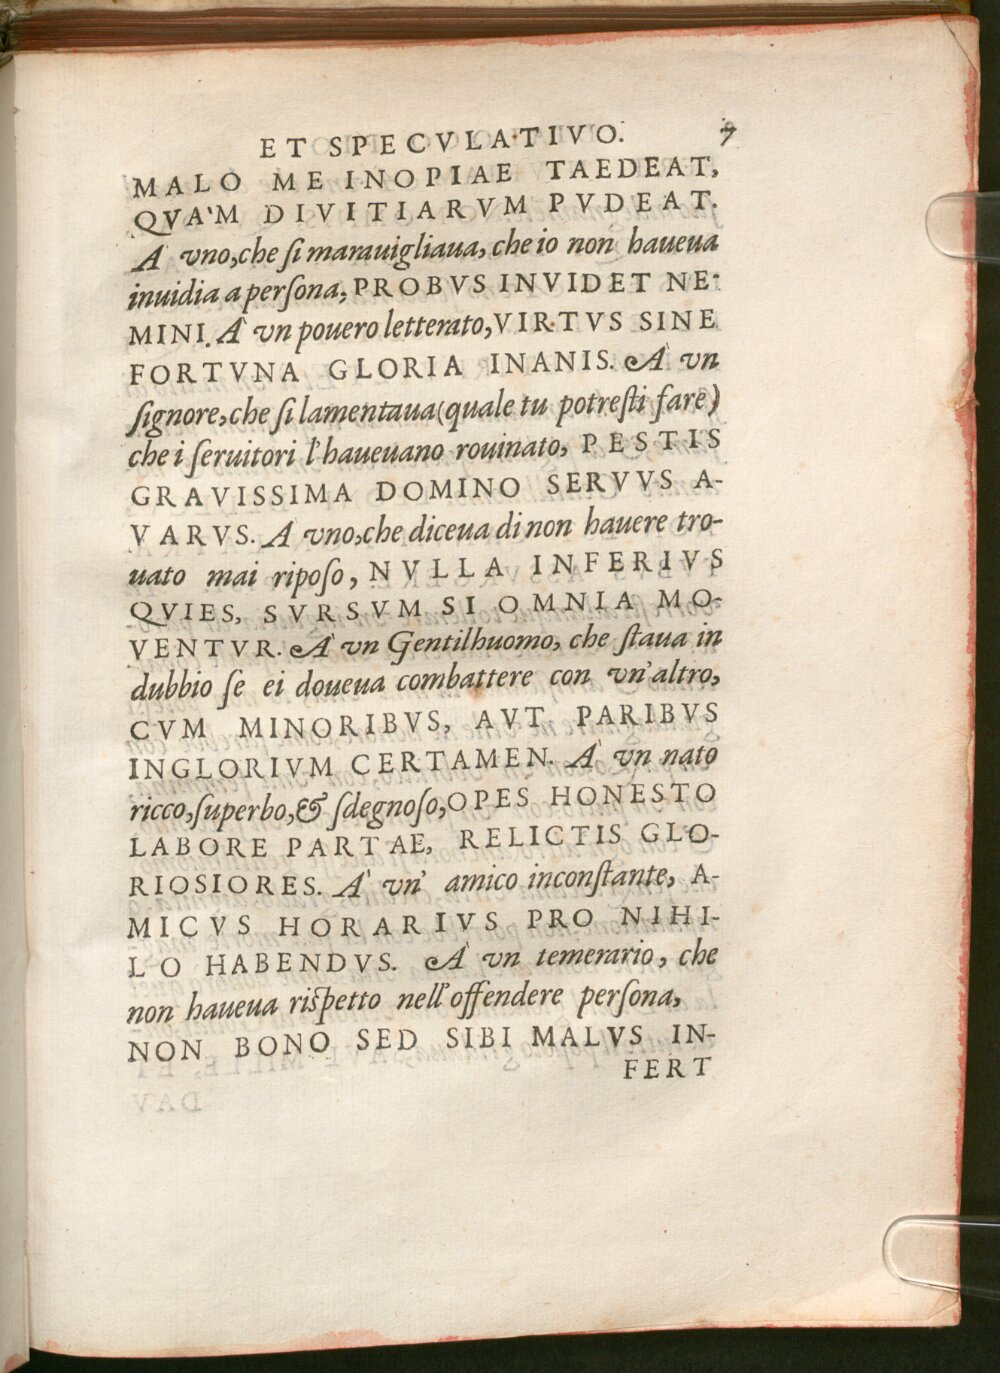 ET SPECVLATIVO. 7
MALO ME INOPIAE TAEDEAT,
QVA'M DIVITIARVM PVDEAT.
A' vno, che ſi marauigliaua, che io non haueua
inuidia a perſona, PROBVS INVIDET NE-
MINI. A' vn pouero letterato, VIRTVS SINE
FORTVNA GLORIA INANIS. A' vn
ſignore, che ſi lamentaua (quale tu potreſti fare)
che i ſeruitori l'haueuano rouinato, PESTIS
GRAVISSIMA DOMINO SERVVS A-
VARVS. A' vno, che diceua di non hauere tro-
uato mai ripoſo, NVLLA INFERIVS
QVIES, SVRSVM SI OMNIA MO-
VENTVR. A' vn Gentilhuomo, che ſtaua in
dubbio ſe ei doueua combattere con vn'altro,
CVM MINORIBVS, AVT PARIBVS
INGLORIVM CERTAMEN. A' vn nato
ricco, ſuperbo, & ſdegnoſo, OPES HONESTO
LABORE PARTAE, RELICTIS GLO-
RIOSIORES. A' vn' amico inconſtante, A-
MICVS HORARIVS PRO NIHI-
LO HABENDVS. A' vn temerario, che
non haueua riſpetto nell'offendere perſona,
NON BONO SED SIBI MALVS IN-
FERT